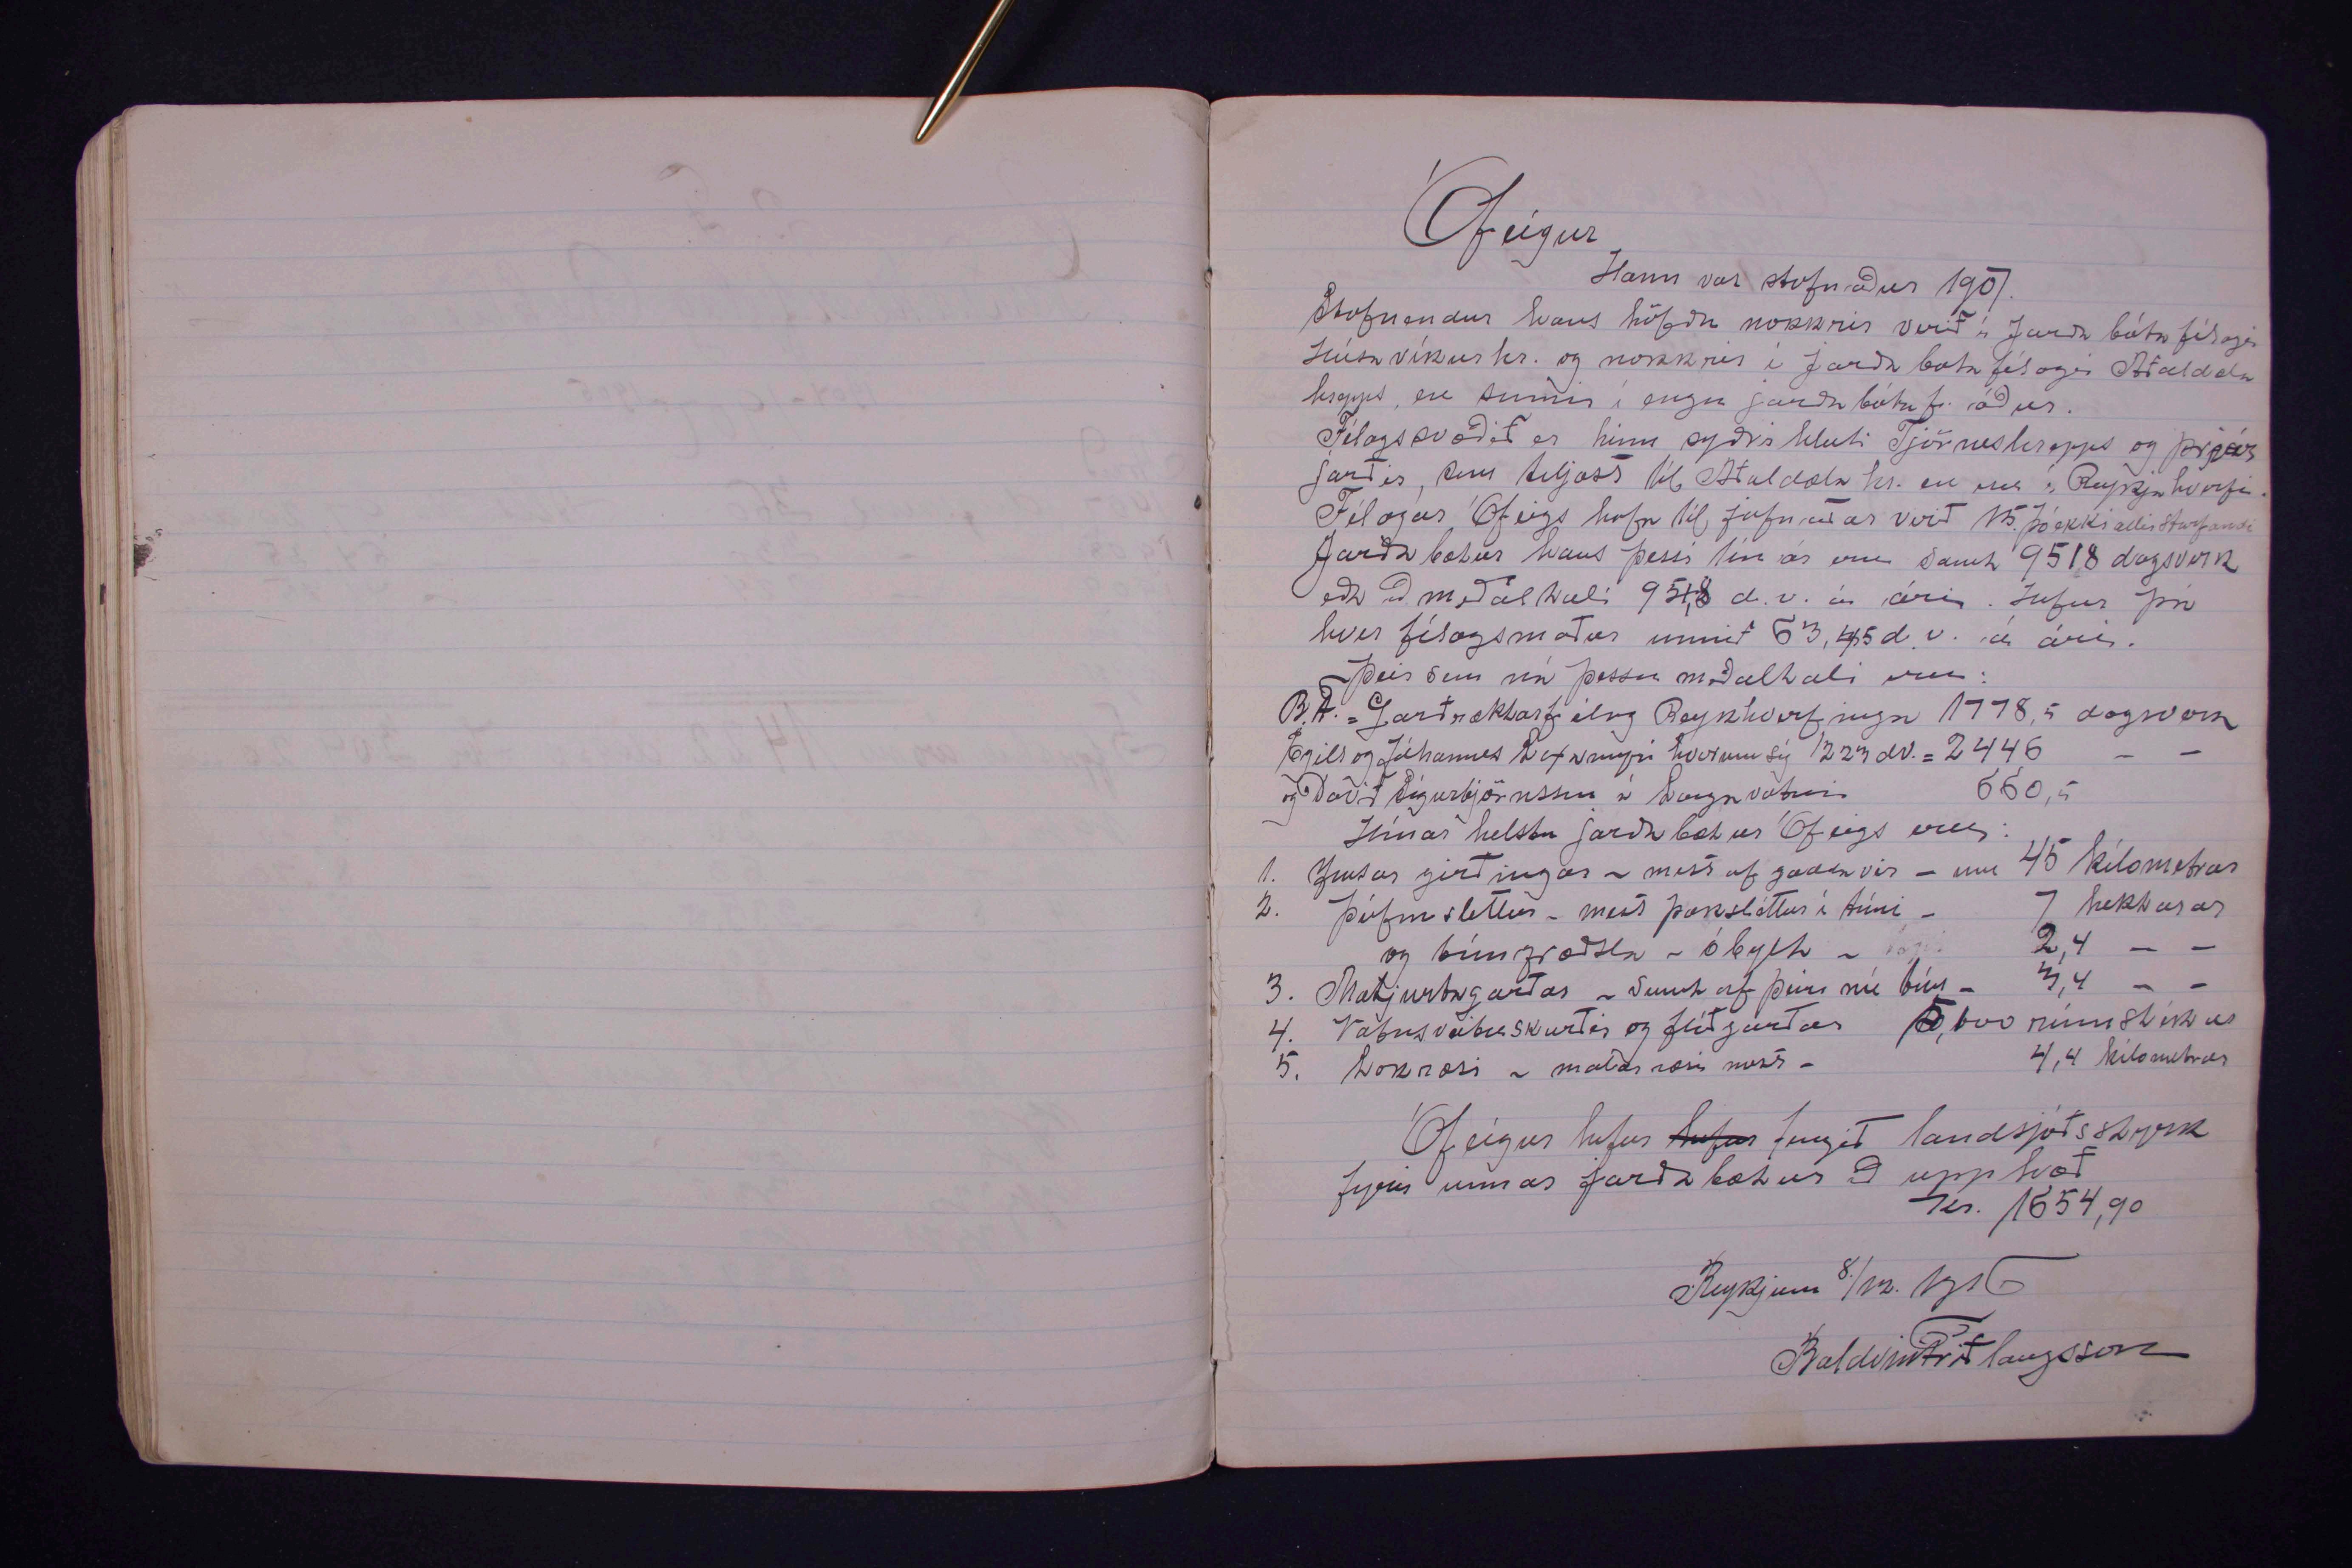 Ófeigur
Hann var stofnaður 1907.
Stofnendur hans höfðu nokkrir verið í Jarðabótafélagi
Húsavíkurhr. og nokkrir í Jarðabótafélagi Aðaldæla
hrepps, en sumir í engu jarðabótaf. áður.
Félagssvæðið er hinn syðri hluti Tjörneshrepps og þrjár
jarðir, sem teljast til Aðaldæla hr. en eru í Reykjahverfi.
Félagar Ófeigs hafa til jafnaðar verið 15. þó ekki allir starfandi
Jarðabætur hans þessi tíu ár eru samt 9518 dagsverk
eða að meðaltali 951,8 d.v. á ári. Hefur þá
hver félagsmaður unnið 63,45 d.v. á ári.
Þeir sem ná þessu meðaltali eru:
B.F. = Jarðræktarfélag Reykhverfinga 1778,5 dagsverk
Egill og Jóhannes Laxamýri hvor um sig 1223 dv. = 2446 — —
og Davíð Sigurbjörnsson á Langavatni 660,5
Hinar helstu jarðabætur Ófeigs eru:
1. Ýmsar girðingar ~ mest af gaddavír — um 45 kílometrar
2. Þúfnasléttur — mest þaksléttur í túni — 7 hektarar
og túngræðsla ~ óbylt ~ 2,4 — —
3. Matjurtagarðar ~ samt af þeim nú tún — 3,4 — —
4. Vatnsveituskurðir og flóðgarðar 5,600 rúmstikur
5. Lokræsi ~ malarræsi mest — 4,4 kílometrar
Ófeigur hefur hefur fengið landsjóðsstyrk
fyrir unnar jarðabætur að upphæð
Kr. 1654,90
Reykjum 8/12. 1916
Baldvin Friðlaugsson